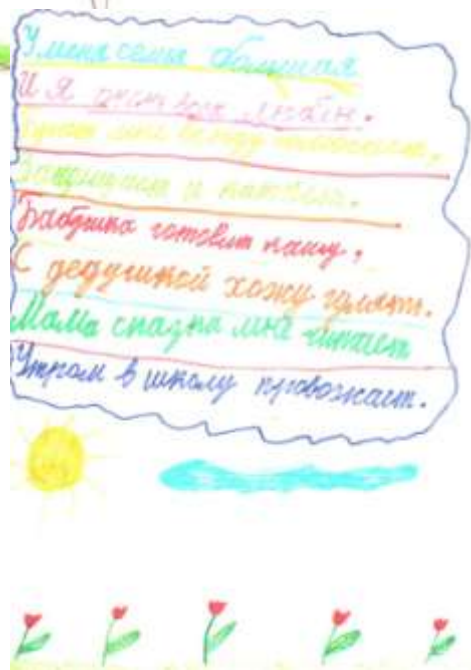 У меня семья большая
И я очень всех люблю.
мне всегда
и
Бабушка готовит кашу,
С дедушкой хожу гулять.
Мама сказки мне читает
Утром в школу провожает.